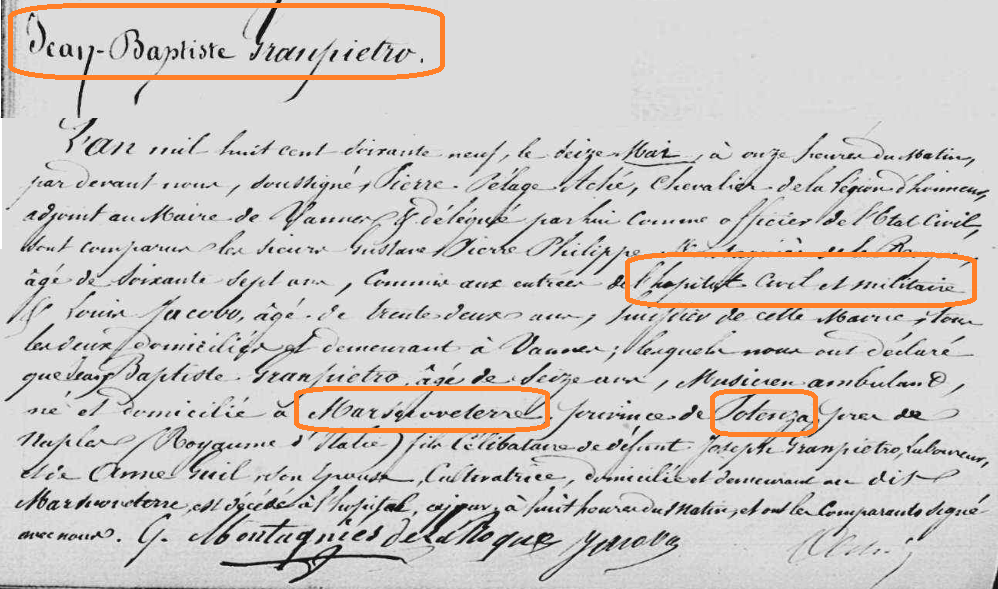 Jean-Baptiste Granpietro.
L'an mil huit cent soixante neuf, le seize Mai, à onze heures du Matin,
par devant nous, soussigné, Pierre Pélage Aché, Chevalier de la Légion d'honneur,
adjoint au Maire de Vannes & délégué par lui comme officier de l'Etat Civil,
sont comparus les sieurs Gustave Pierre Philippe de la Roque,
âgé de soixante sept ans, Commis aux entrées de l'hopital Civil et militaire
& Louis Jacobo, âgé de trente deux ans, huissier de cette Mairie, tous
les deux domiciliés et demeurant à Vannes; lesquels nous ont déclaré
que Jean Baptiste Granpietro, âgé de Seize ans, Musicien ambuland,
né et domicilié à Marsicoveterre, province de Potenza, près de
Naples (Royaume d'Italie) fils célibataire de défunt Joseph Granpietro, laboureur,
et de Anne son épouse, Cultivatrice, domiciliée et demeurant au dit
Marsicoveterre, est décédé à l'hopital, ce jour, à huit heures du Matin, et ont les Comparants signé
avec nous. G. Montagniès de la Roque Jacobo